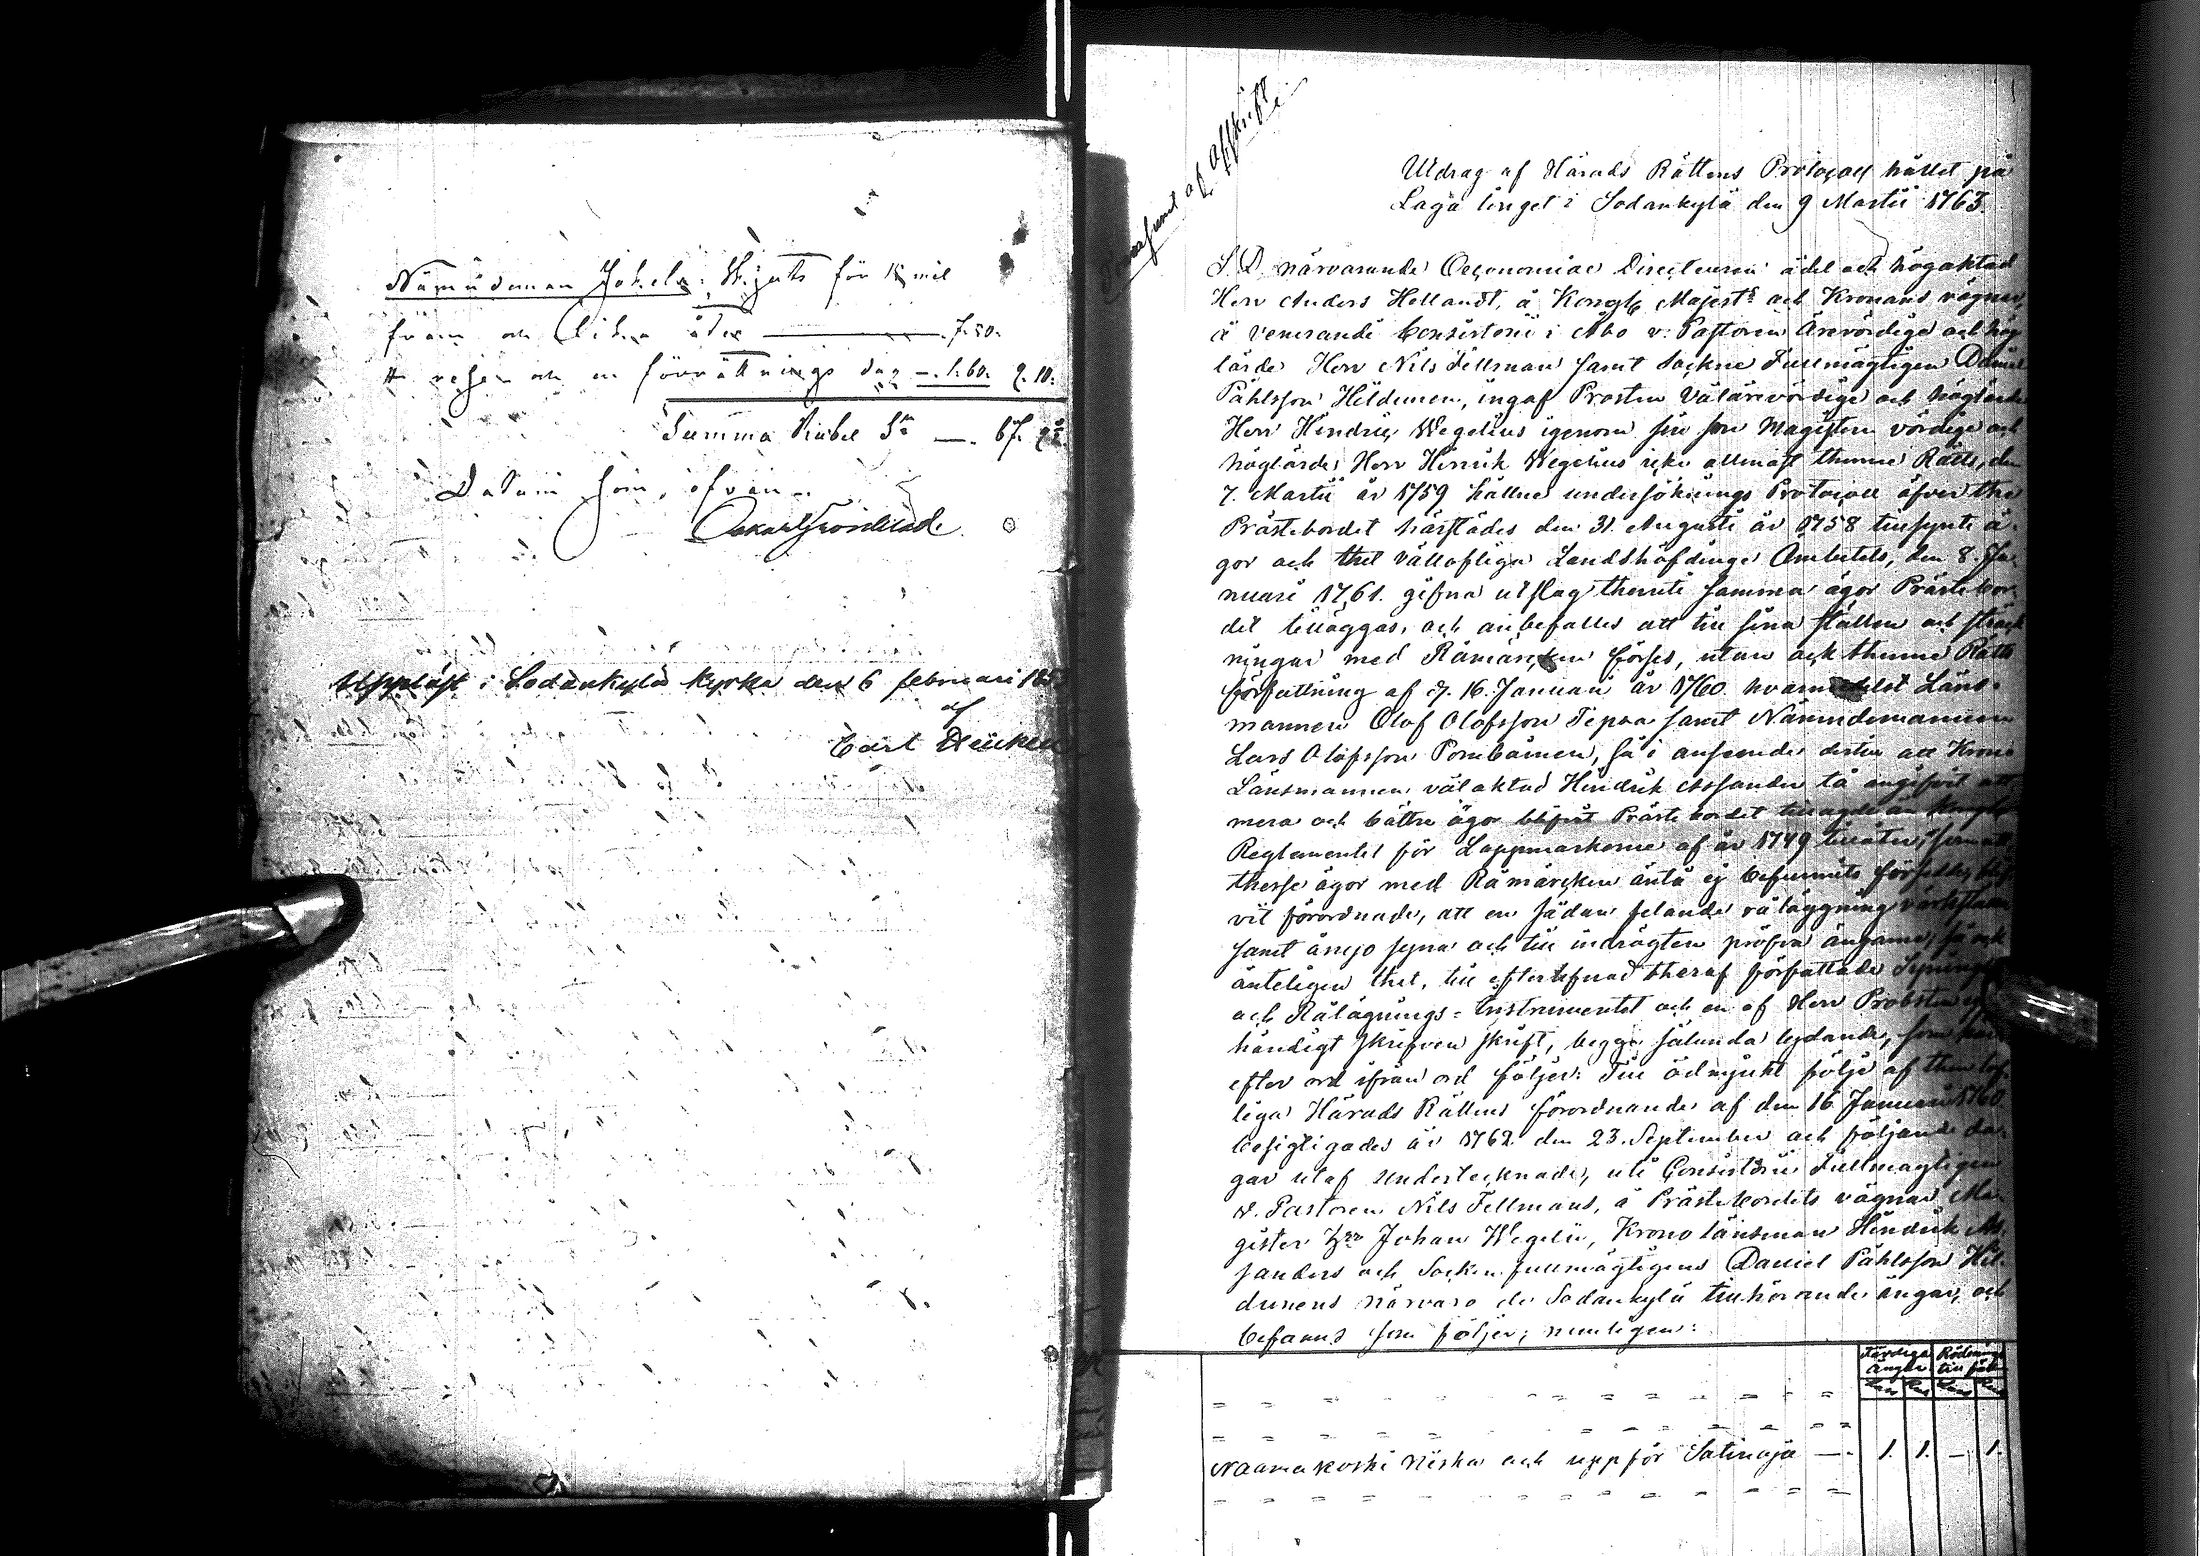 Nämndeman Jokela: Skjuts för 15 mil
fram och lika åter — 7.50.
# resa och en förrättnings dag — 1.60. 9. 10.
Summa Rubel Sr —. 67.
Datum som ofvan.
Uppläst i Sodankylä kyrka den 6 februari
af
Carl Heiken
af afskrift
Utdrag af Härads Rättens Protocoll hållet på
Laga tinget i Sodankylä den 9 Martii 1763.
S. D. närvarande Oeconomiae Directeuren ädel och högaktad
Herr Anders Hellandt, å Kongl. Majest:s och Kronans vägnar,
å venerandi Consistorii i Åbo v: Pastoren Ärevördige och hög
lärde Herr Nils Fellman samt Sockne Fullmägtigen Daniel
Påhlsson Hildunen, ingaf Prosten Välärevördige och höglärde
Herr Hindric Wegelius igenom sin son Magistern vördige och
höglärde Herr Henrik Wegelius icke allenast thenne Rätts, den
7. Martii år 1759 hållne undersöknings Protocoll öfver the
Prästebordet härstädes den 31. Augusti år 1758 tillsynte ä-
gor och thet vällofliga Landshöfdinge Ambetets, den 8. Ja-
nuari 1761. gifna utslag therute samma ägor Prästebor-
det tilläggas, och anbefalles att till sina ställen och sträck
ningar med Råmärcken förses, utan ock thenne Rätts
författning af d. 16. Januarii år 1760. hvarmedelst Läns-
mannen Olof Olofsson Tepsa samt Nämndemannen
Lars Olofsson Pombainen, så i anseende dertill att Krono
Länsmannen välaktad Hindrik Assander tå angifvit att
mera och bättre ägor blifvit Prästebordet tillagde än Kongl.
Reglementet för Lappmarkerne af år 1749 tillåter, som att
thesse ägor med Råmärcken äntå ej befunnits försedde, blif-
vit förordnade, att en sådan felande råläggning värkställa
samt å nyo syna och till indrägten pröfva ängarne, så ock
änteligen thet, till efterlefnad theraf författade Synings
och Råläggnings-Instrumentet och en af Herr Probsten egen
händigt skrifven skrift, begge sålunda lydande, som här
efter ord ifrån ord följer: Till ödmjukt följe af then lof
liga Härads Rättens förordnande af den 16 Januarii 1760
besigtigades år 1762 den 23. September och följande da-
gar utaf undertecknade, uti Consistorii Fullmägtigen
v. Pastoren Nils Fellmans, å Prästebordets vägnar Ma-
gister Hrr Johan Wegelii, Krono länsman Hindrik As-
sanders och Socken fullmägtigens Daniel Påhlsson Hil-
dunens närvaro de Sodankylä tillhörande ängar, och
befanns som följer; nemligen:
Färdiga Ängar Rödnings
Naamakoski Niska och uppför Satinoja —. 1. 1. —. 1.